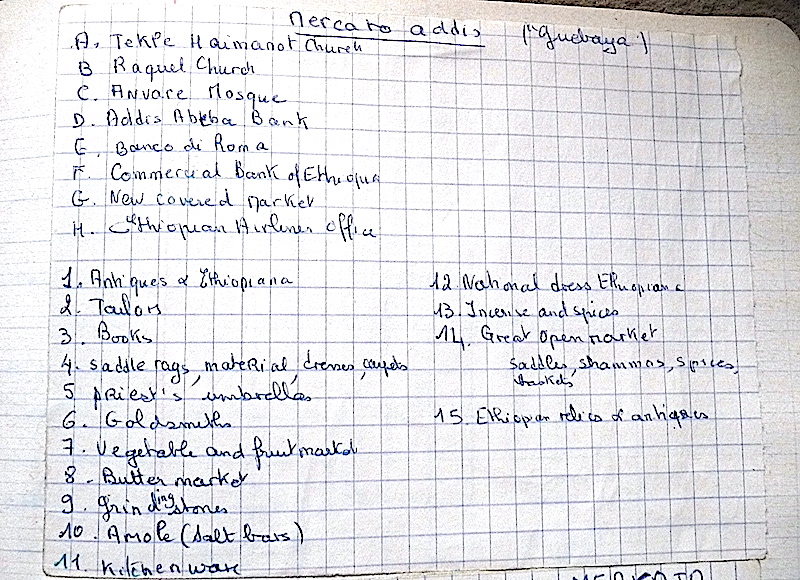 Mercato addis ("Guebaya")
A. Tekle Haimanot Church
B Raquel Church
C. Anware Mosque
D. Addis Abeba Bank
E. Banco di Roma
F. Commercial Bank of Ethiopia
G. New covered market
H. Ethiopian Airlines office
1. Antiques & Ethiopiana
2. Tailors
3. Books
4. saddle rags, material, dresses, carpets
5 priest's umbrellas
6. Goldsmiths
7. Vegetable and fruit market
8 - Butter market
9. grinding stones
10. Amole (salt bars)
11. Kitchen ware
12 National dress Ethiopiana
13. Incense and spices
14. Great open market
saddles, shammas, spices,
baskets
15. Ethiopian relics & antiques
MERCATO